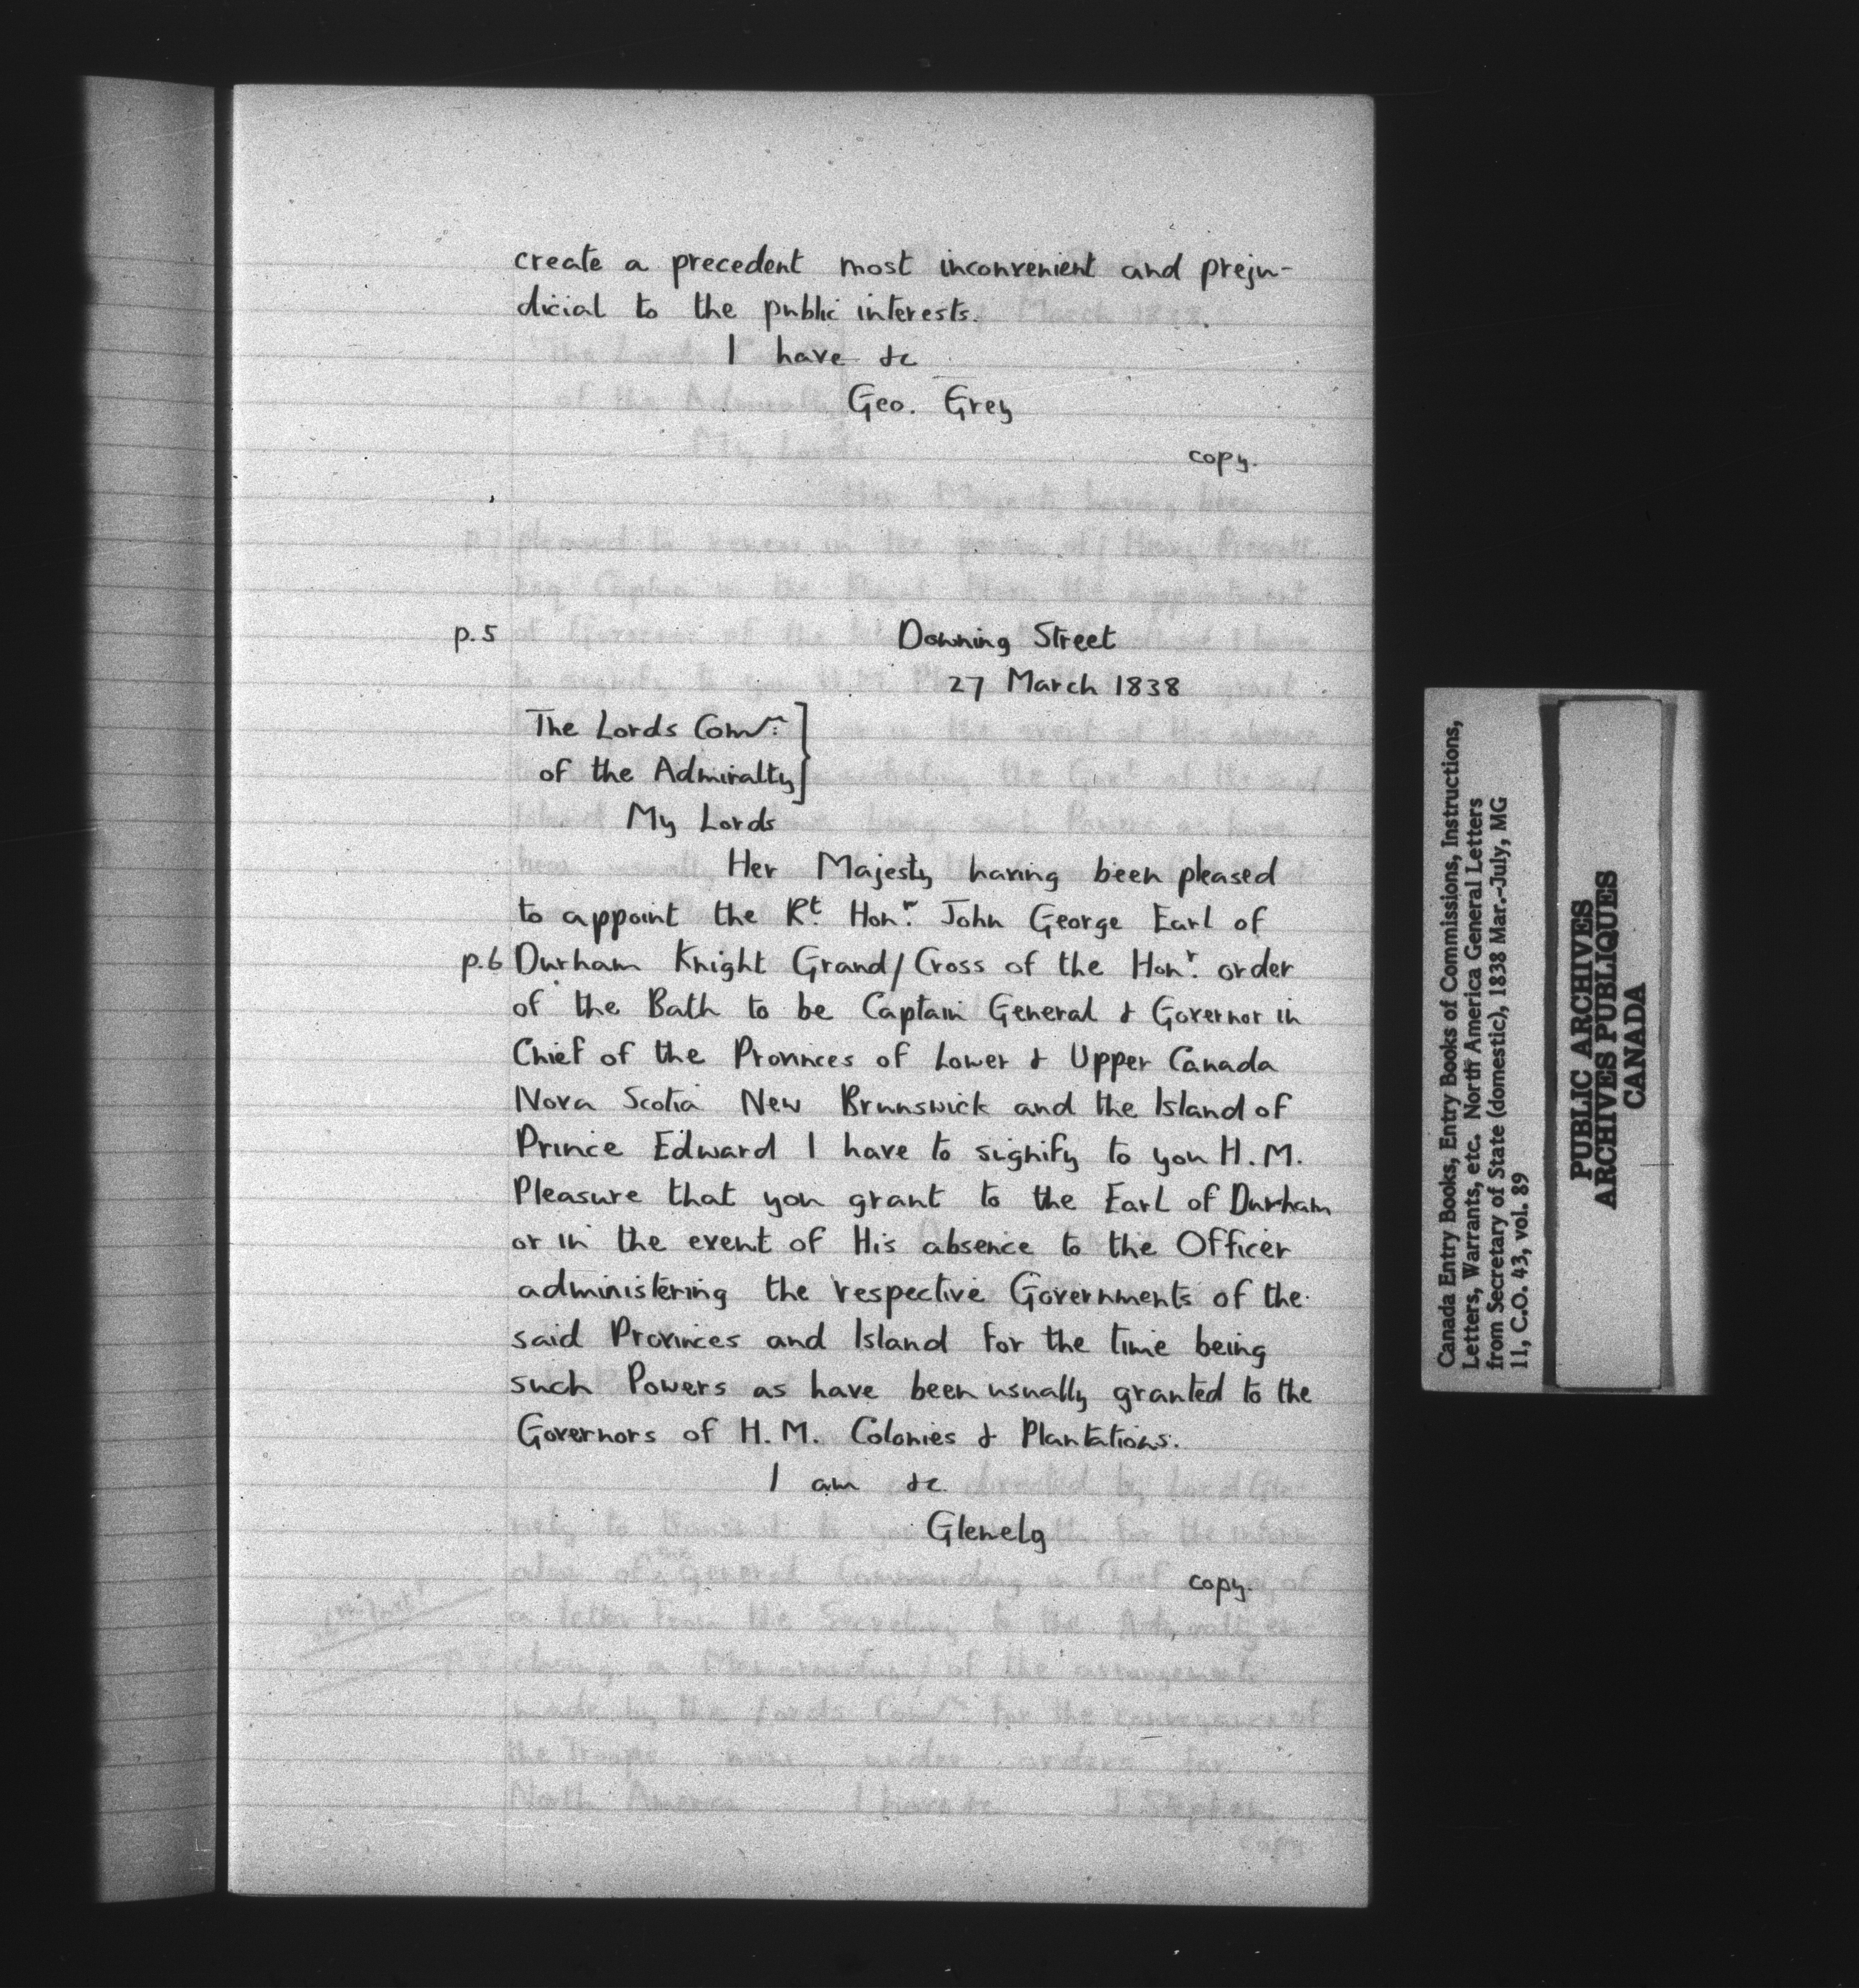 create a precedent most inconvenient and preju-
dicial to the public interests.
I have &c
Geo. Grey
copy.
p.5
Downing Street
27 March 1838
The Lords Comrs
of the Admiralty
My Lords
Her Majesty having been pleased
to appoint the Rt. Honr. John George Earl of
p.6 Durham Knight Grand/Cross of the Honr. order
of the Bath to be Captain General & Governor in
Chief of the Provinces of Lower & Upper Canada
Nova Scotia New Brunswick and the Island of
Prince Edward I have to signify to you H.M.
Pleasure that you grant to the Earl of Durham
or in the event of His absence to the Officer
administering the respective Governments of the
said Provinces and Island for the time being
such Powers as have been usually granted to the
Governors of H.M. Colonies & Plantations.
I am &c.
Glenelg
copy.
Canada Entry Books, Entry Books of Commissions, Instructions,
Letters, Warrants, etc. North America General Letters
from Secretary of State (domestic), 1838 Mar.-July, MG
11, C.O. 43, vol. 89
PUBLIC ARCHIVES
ARCHIVES PUBLIQUES
CANADA